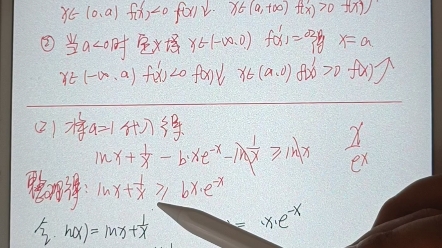 x∈(0,a) f'(x)<0 f(x)↓. x∈(a,+∞) f'(x)>0 f(x)↑
② 当a<0时 定义域 x∈(-∞,0) f'(x)=0得 x=a
x∈(-∞,a) f'(x)<0 f(x)↓ x∈(a,0) f'(x)>0 f(x)↑
(2) 将a=1代入得
lnx+1/x - b·xe^-x - ≥
x/e^x
整理得: lnx+1/x ≥ bx·e^-x
令 h(x)=lnx+1/x = x·e^-x